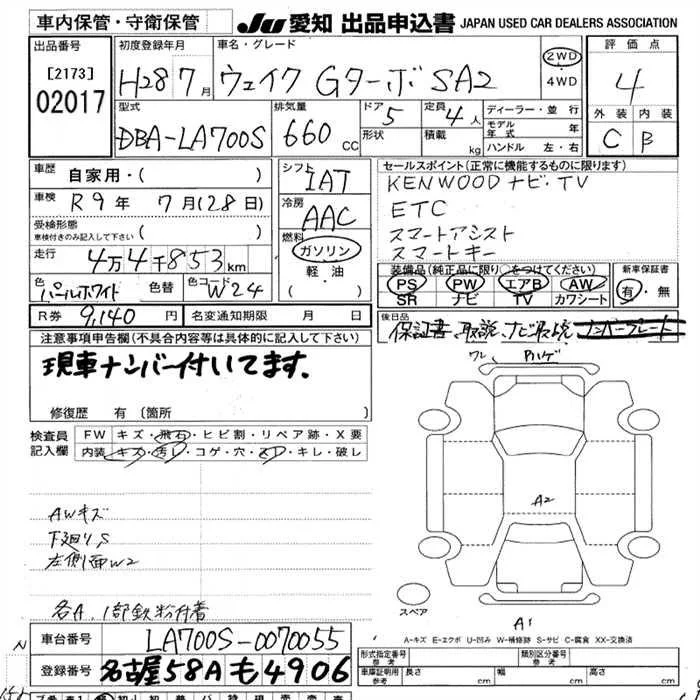 車内保管・守衛保管
JU 愛知 出品申込書 JAPAN USED CAR DEALERS ASSOCIATION
出品番号
[2173]
02017
初度登録年月
H28 7月
車名・グレード
ウェイク Gターボ SA2
2WD
・
4WD
評価点
4
外装 内装
C B
型式
DBA-LA700S
排気量
660 CC
ドア 5
形状
定員 4人
積載 kg
ディーラー・並行
モデル年式 年
ハンドル 左・右
車歴 自家用・( )
車検 R9年 7月(28日)
受検形態
車検付きのみ記入して下さい ( )
走行 4万4千853km
色 パールホワイト 色替 色コード W24
R券 9,140円 名変通知期限 月 日
シフト
IAT
冷房
AAC
燃料
ガソリン
軽・油
( )
セールスポイント(正常に機能するものに限ります)
KENWOOD ナビ・TV
ETC
スマートアシスト
スマートキー
装備品(純正品に限り○をつけてください)
PS PW エアB AW
SR ナビ TV カワシート
新車保証書
有・無
後日品
保証書、取説、ナビ取説 ナンバープレート
注意事項申告欄(不具合内容等は具体的に記入して下さい)
現車ナンバー付いてます。
修復歴 有 (箇所 )
検査員
記入欄
FW キズ・飛石・ヒビ割・リペア跡・X要
内装 キズ・汚レ・コゲ・穴・スレ・キレ・破レ
ワレ
ハゲ
A2
A1
スペア
AWキズ
下廻りS
左側面W2
各A、1部鉄粉付着
A-キズ E-エクボ U-凹み W-補修跡 S-サビ C-腐食 XX-交換済
車台番号 LA700S-0070055
登録番号 名古屋58A も4906
形式指定番号
参考
類別区分番号
参考
車庫証明用
参考
長さ cm 幅 cm 高さ cm